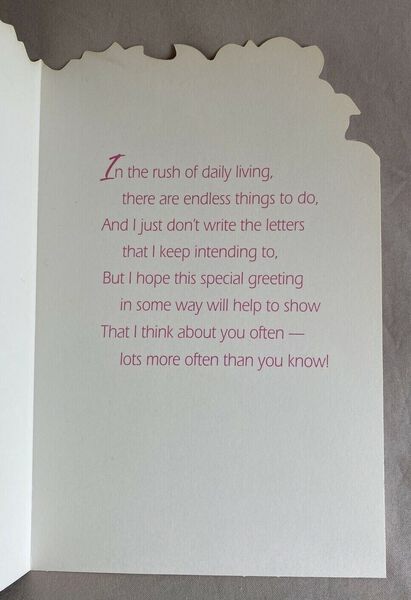 In the rush of daily living,
there are endless things to do,
And I just don't write the letters
that I keep intending to,
But I hope this special greeting
in some way will help to show
That I think about you often —
lots more often than you know!